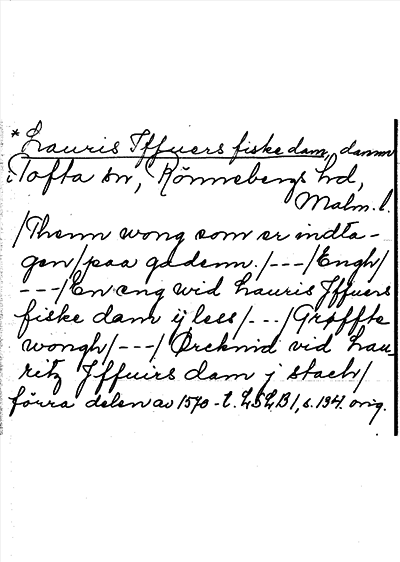 * Lauris Iffuers fiske dam, damm
i Tofta sn, Rönnebergs hd,
Malm. l.
/Thenn wong som er indta-
gen/paa gadenn./---/Engh/
---/En eng wid Lauris Iffuers
fiske dam ij less/---/Grøffte
wongh/---/Ørcknid vid Lau-
ritz Iffuirs dam j stach/
förra delen av 1570-t. LSLB1, s. 194. orig.